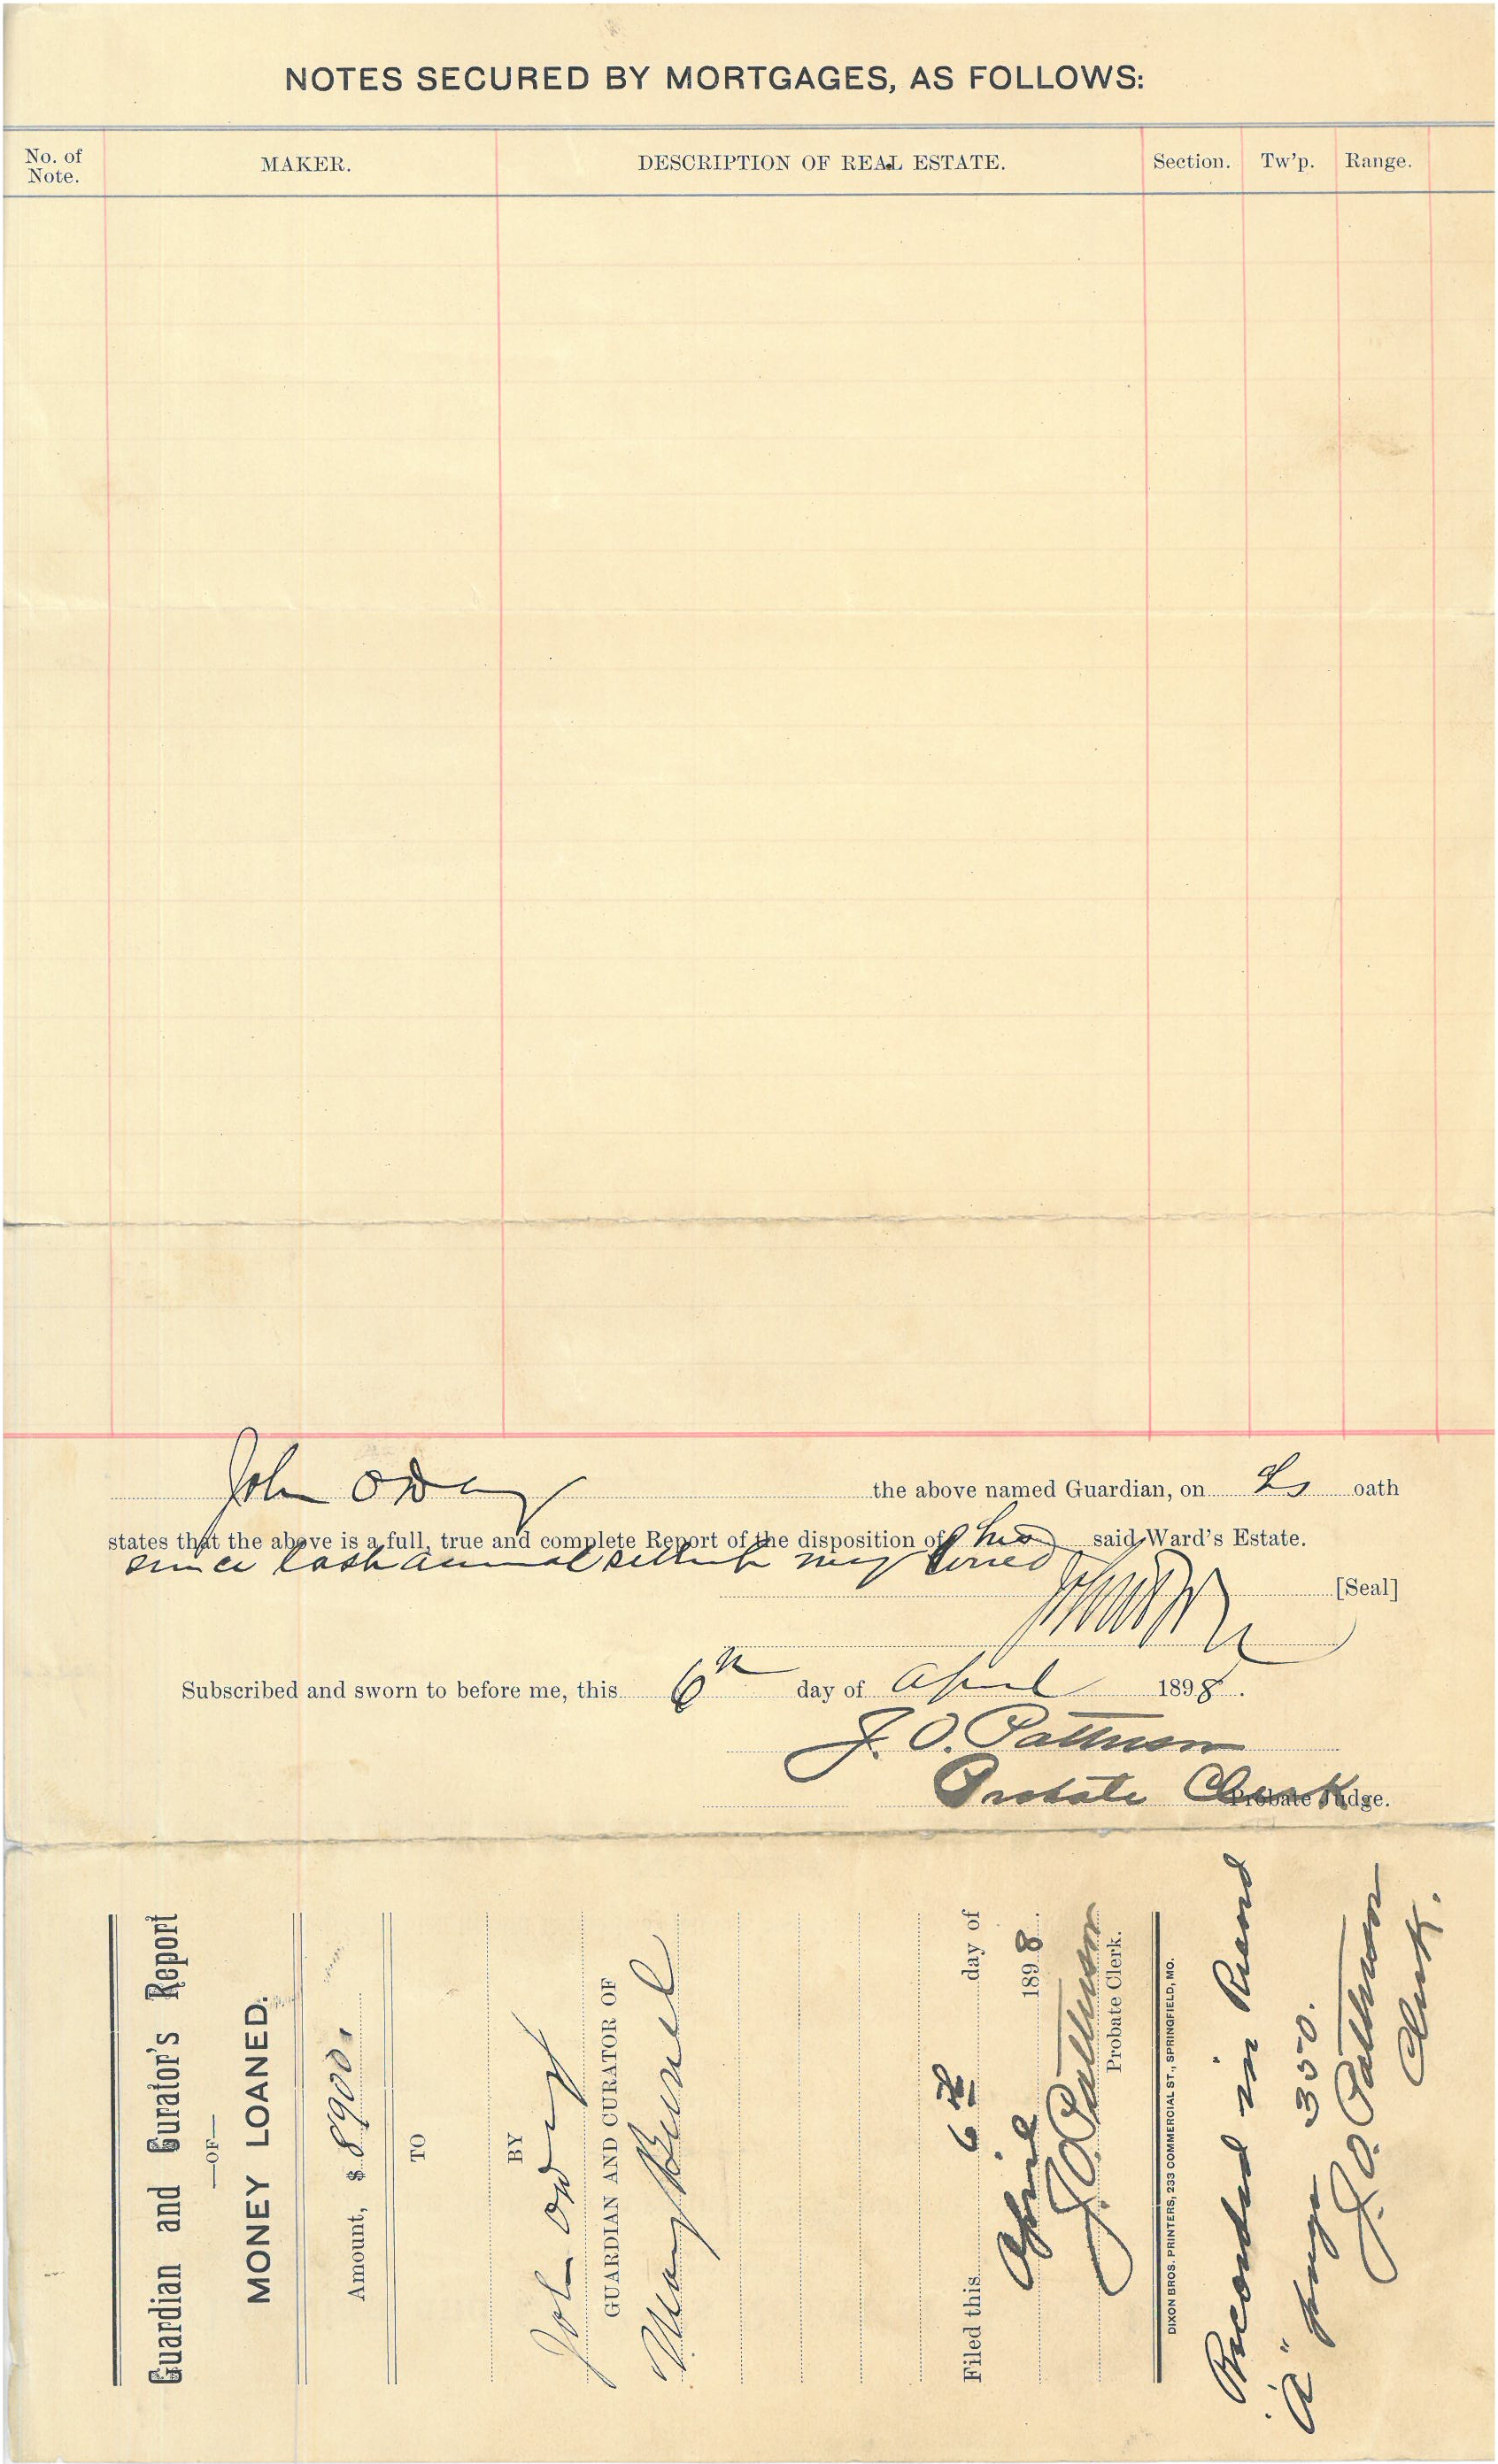 NOTES SECURED BY MORTGAGES, AS FOLLOWS:
No. of Note. MAKER. DESCRIPTION OF REAL ESTATE. Section. Tw'p. Range.
John O'Day the above named Guardian, on his oath
states that the above is a full, true and complete Report of the disposition of his said Ward's Estate.
since last annual
[Seal]
Subscribed and sworn to before me, this 6th day of April 1898.
J. O. Patterson
Probate Clerk
Probate Judge.
Guardian and Curator's Report
—OF—
MONEY LOANED.
Amount, $ 8900.
TO
BY
John O'Day
GUARDIAN AND CURATOR OF
Mary
Filed this 6th day of
April 1898.
J. O. Patterson
Probate Clerk.
DIXON BROS. PRINTERS, 233 COMMERCIAL ST., SPRINGFIELD, MO.
Recorded in Record
"A" page 350.
J. O. Patterson
Clerk.